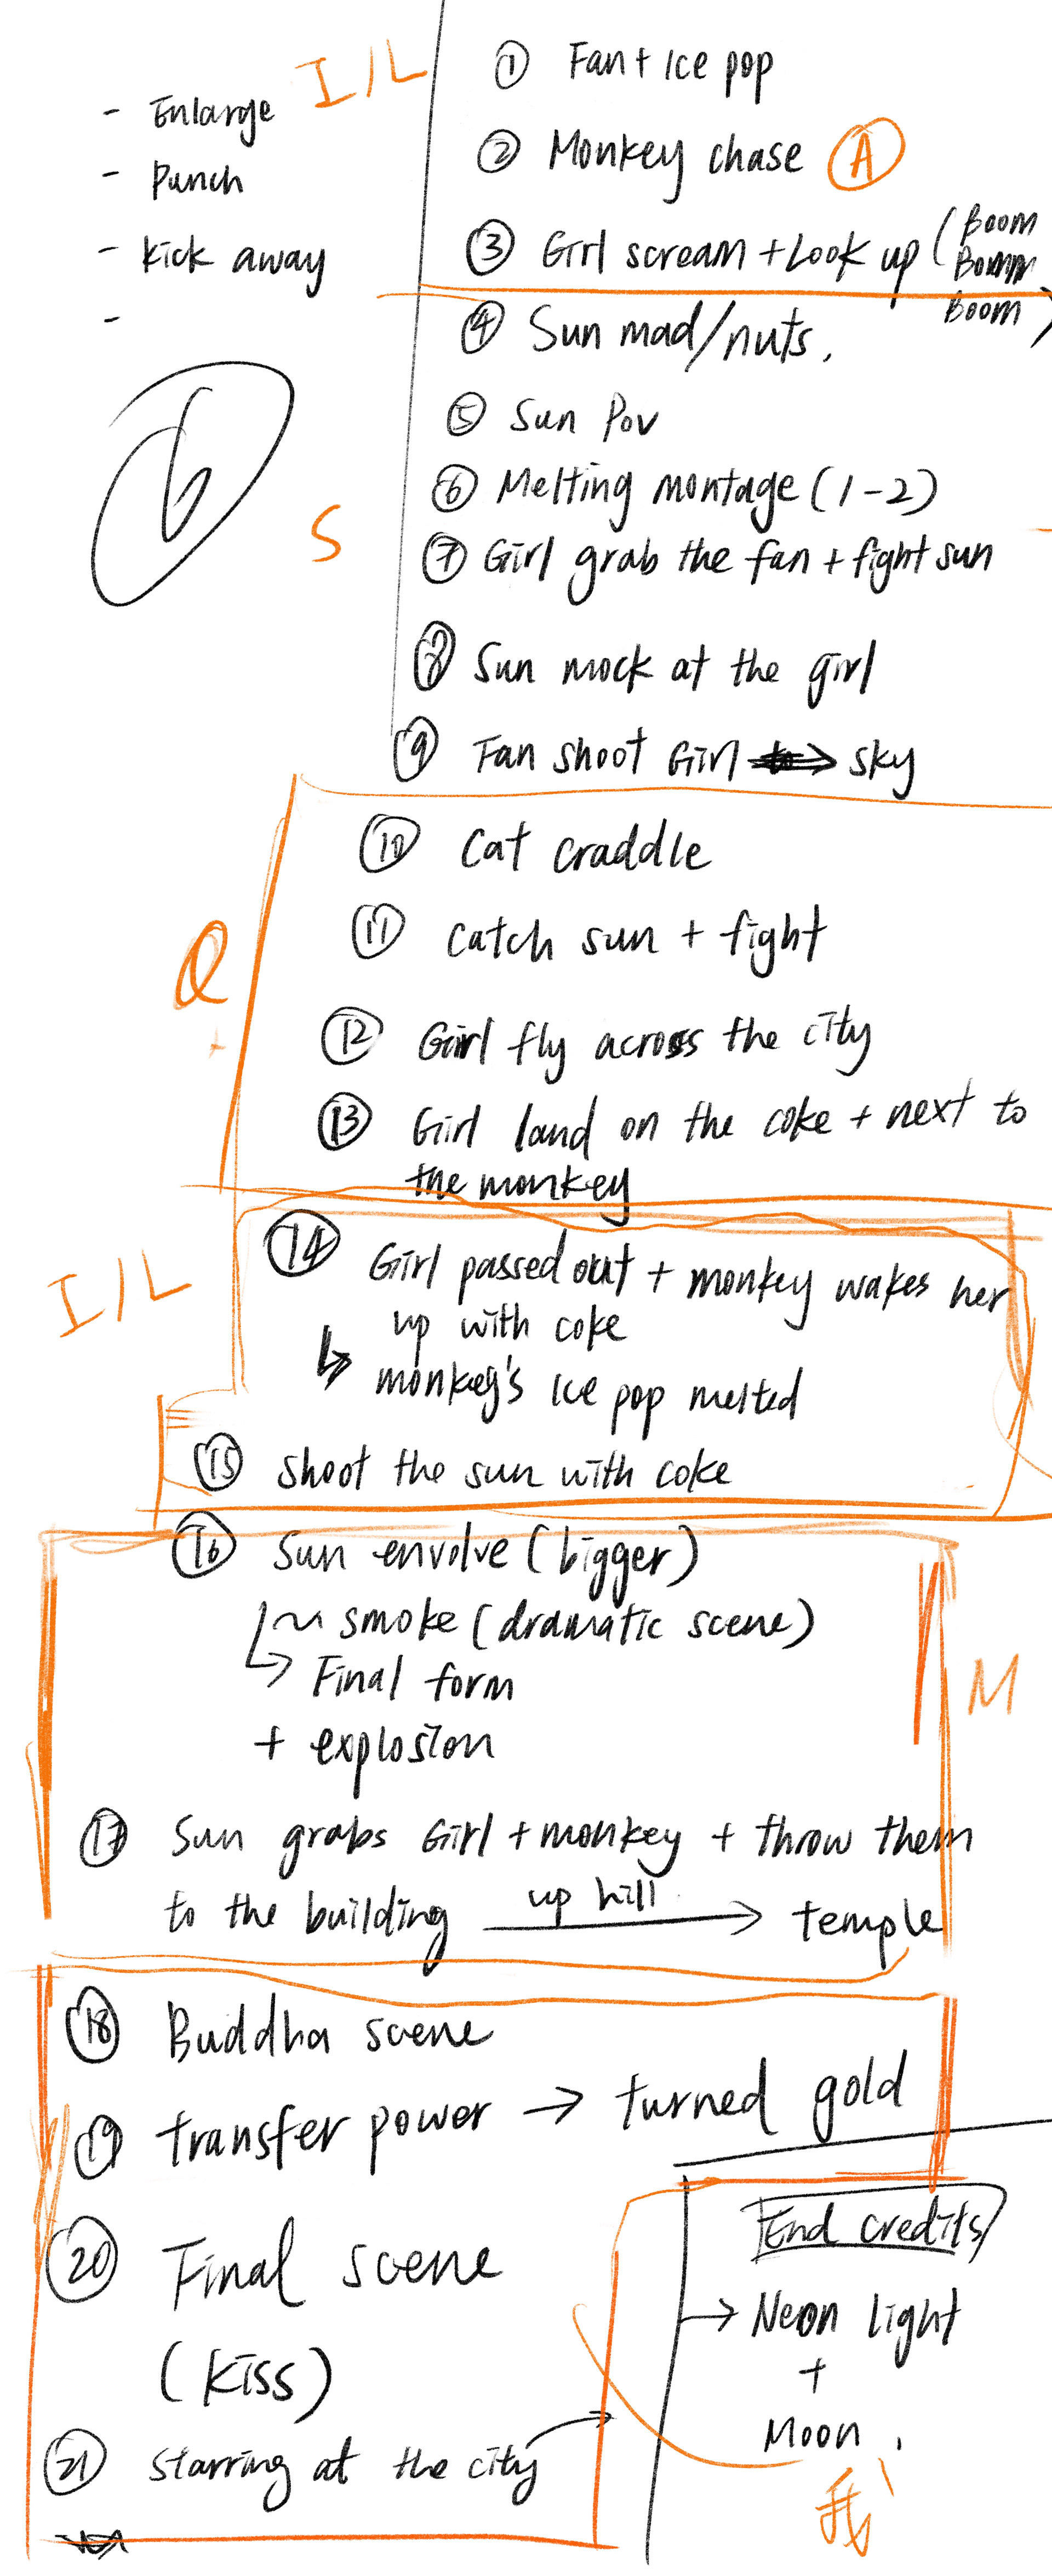 I/L
- Enlarge
- Punch
- Kick away
-
6
① Fan + Ice pop
② Monkey chase Ⓐ
③ Girl scream + Look up (Boom
Bomm
Boom)
④ Sun mad/nuts.
S
⑤ Sun Pov
⑥ Melting montage (1-2)
⑦ Girl grab the fan + fight sun
⑧ Sun mock at the girl
⑨ Fan shoot Girl → sky
Q
⑩ Cat craddle
⑪ Catch sun + fight
⑫ Girl fly across the city
⑬ Girl land on the coke + next to
the monkey
I/L
⑭ Girl passed out + monkey wakes her
up with coke
↳ monkey's Ice pop melted
⑮ Shoot the sun with coke
M
⑯ Sun envolve (bigger)
~ smoke (dramatic scene)
↳ Final form
+ explosion
⑰ Sun grabs Girl + monkey + throw them
to the building up hill → temple
⑱ Buddha scene
⑲ transfer power → turned gold
⑳ Final scene
(kiss)
㉑ Starring at the city
End credits
→ Neon light
+
Moon.
我